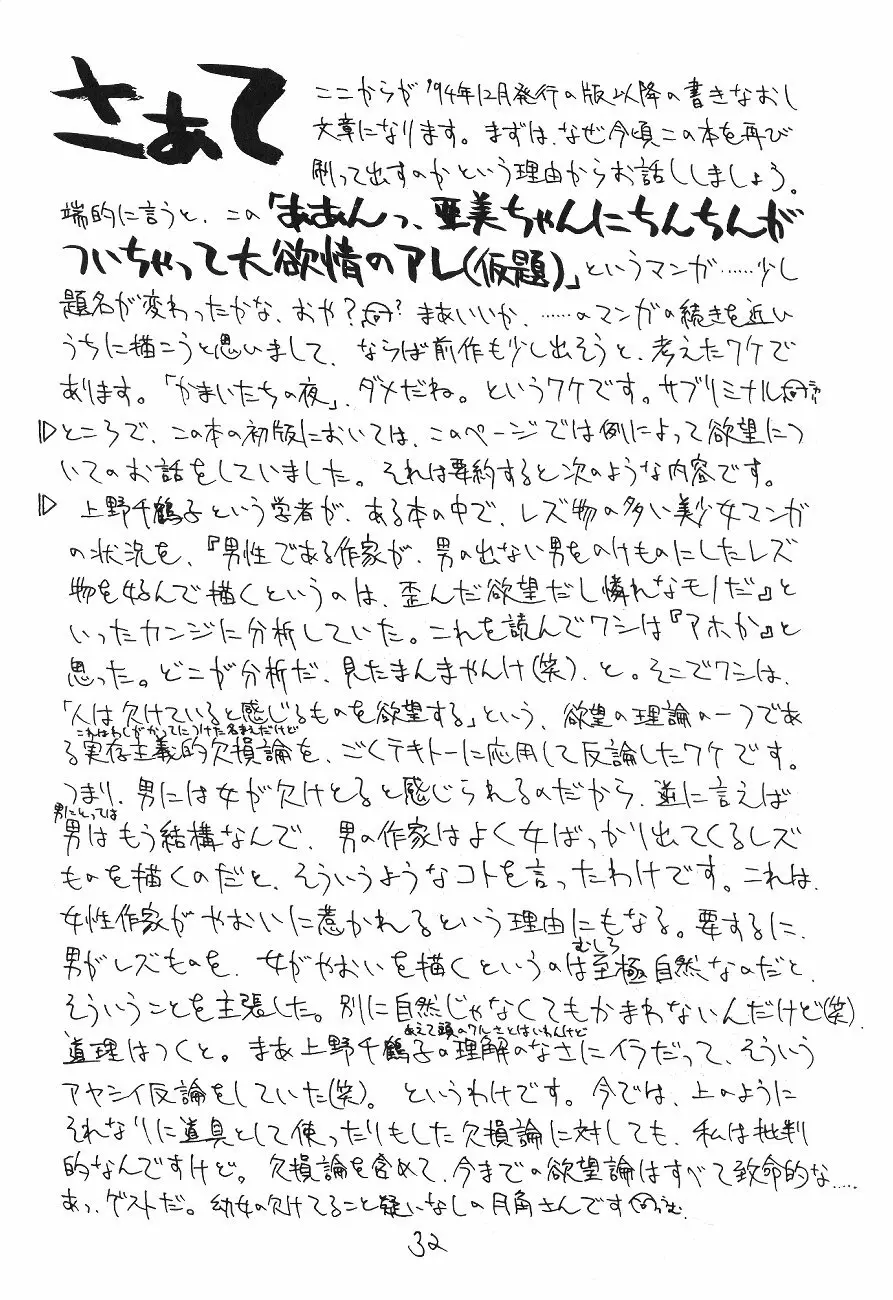 さぁて
ここからが'94年12月発行の版以降の書きなおし
文章になります。まずは、なぜ今頃この本を再び
刷って出すのかという理由からお話ししましょう。
端的に言うと、この「ああんっ、亜美ちゃんにちんちんが
ついちゃって大欲情のアレ(仮題)」というマンガ……少し
題名が変わったかな、おや? まあいいか、……のマンガの続きを近い
うちに描こうと思いまして、ならば前作も少し出そうと、考えたワケで
あります。「かまいたちの夜」、ダメだね。というワケです。サブリミナル
▷ところで、この本の初版においては、このページでは例によって欲望につ
いてのお話をしていました。それは要約すると次のような内容です。
▷上野千鶴子という学者が、ある本の中で、レズ物の多い美少女マンガ
の状況を、『男性である作家が、男の出ない男をのけものにしたレズ
物を好んで描くというのは、歪んだ欲望だし憐れなモノだ』と
いったカンジに分析していた。これを読んでワシは『アホか』と
思った。どこが分析だ、見たまんまやんけ(笑)、と。そこでワシは、
「人は欠けていると感じるものを欲望する」という、欲望の理論の一つであ
これはわしがかってにつけた名まえだけど
る実存主義的欠損論を、ごくテキトーに応用して反論したワケです。
つまり、男には女が欠けとると感じられるのだから、逆に言えば
男にとっては
男はもう結構なんで、男の作家はよく女ばっかり出てくるレズ
ものを描くのだと、そういうようなコトを言ったわけです。これは、
女性作家がやおいに惹かれるという理由にもなる。要するに、
むしろ
男がレズものを、女がやおいを描くというのは至極自然なのだと、
そういうことを主張した。別に自然じゃなくてもかまわないんだけど(笑)。
あえて頭のワルさとはいわんけど
道理はつくと。まあ上野千鶴子の理解のなさにイラだって、そういう
アヤシイ反論をしていた(笑)。というわけです。今では、上のように
それなりに道具として使ったりもした欠損論に対しても、私は批判
的なんですけど。欠損論を含めて、今までの欲望論はすべて致命的な……
あっ、ゲストだ。幼女の欠けてること疑いなしの月角さんです
32